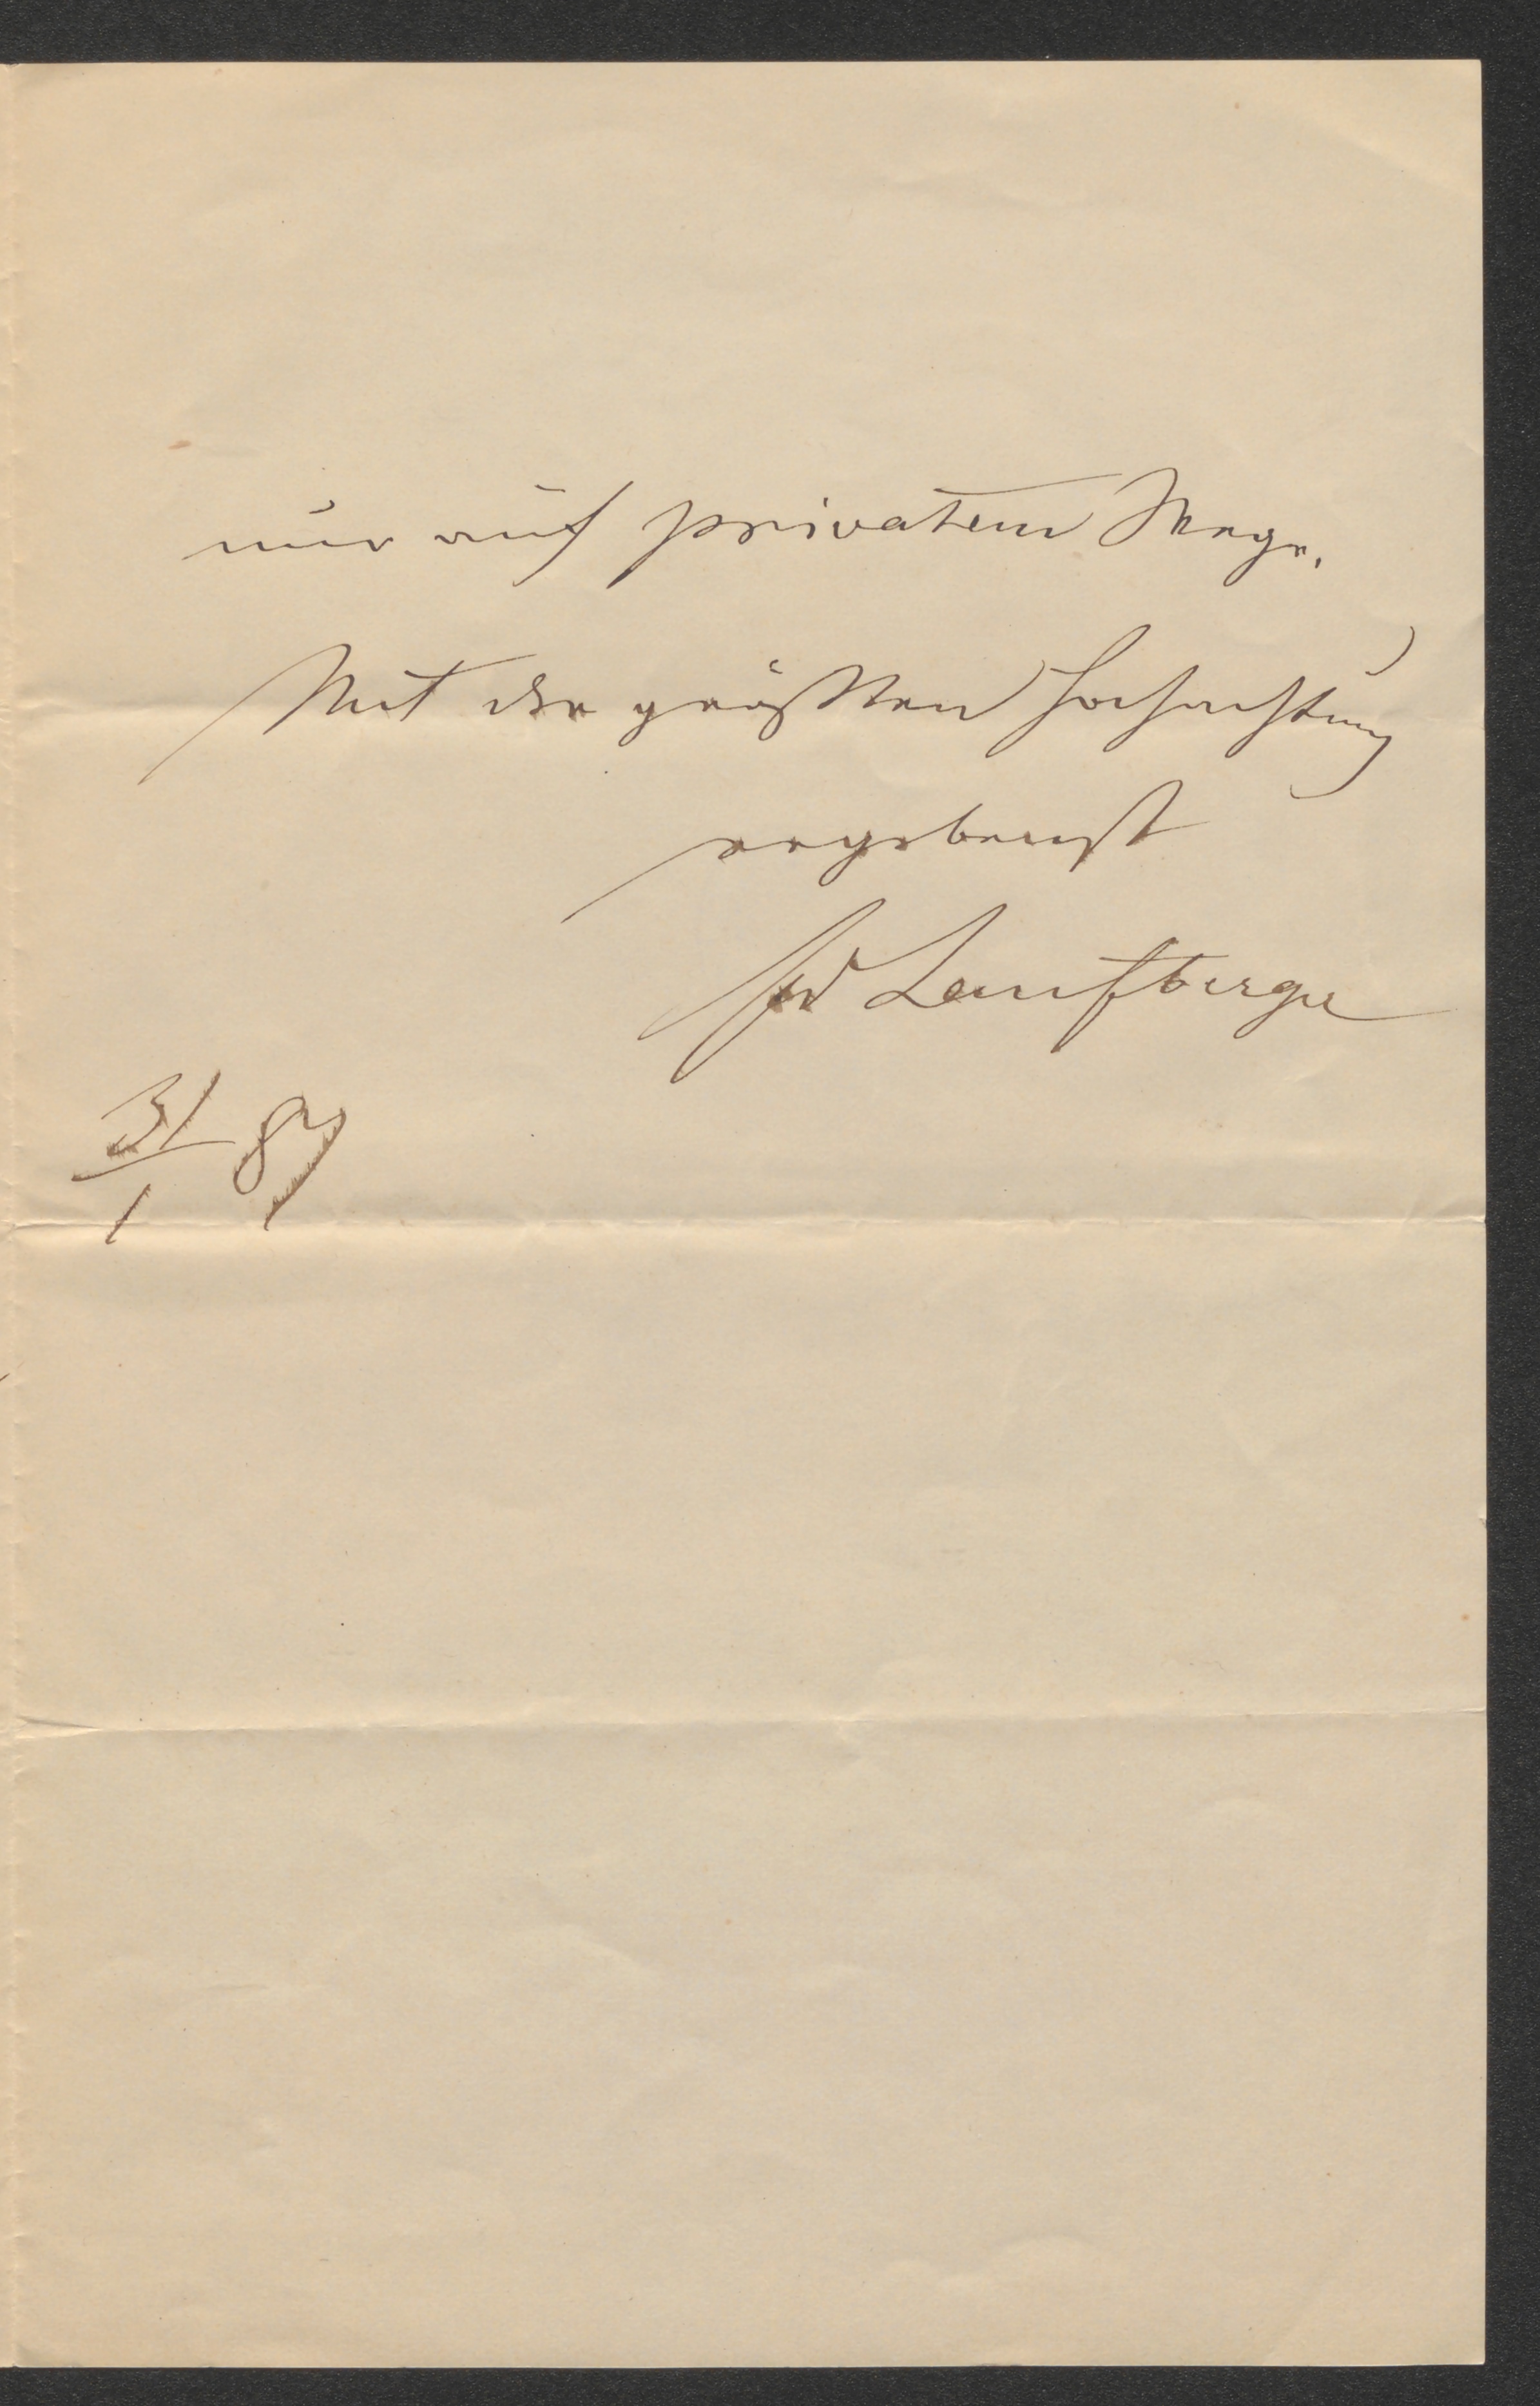 nur auf privatem Wege.
Mit der größten Hochachtung
ergebenst
Laufberger
31/1 87